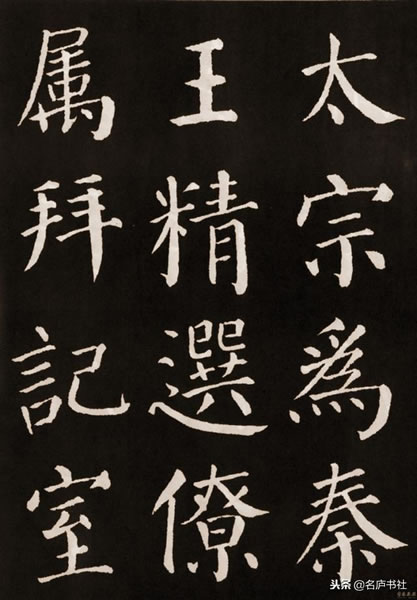 太宗爲秦
王精選僚
属拜記室
头条 @名庐书社